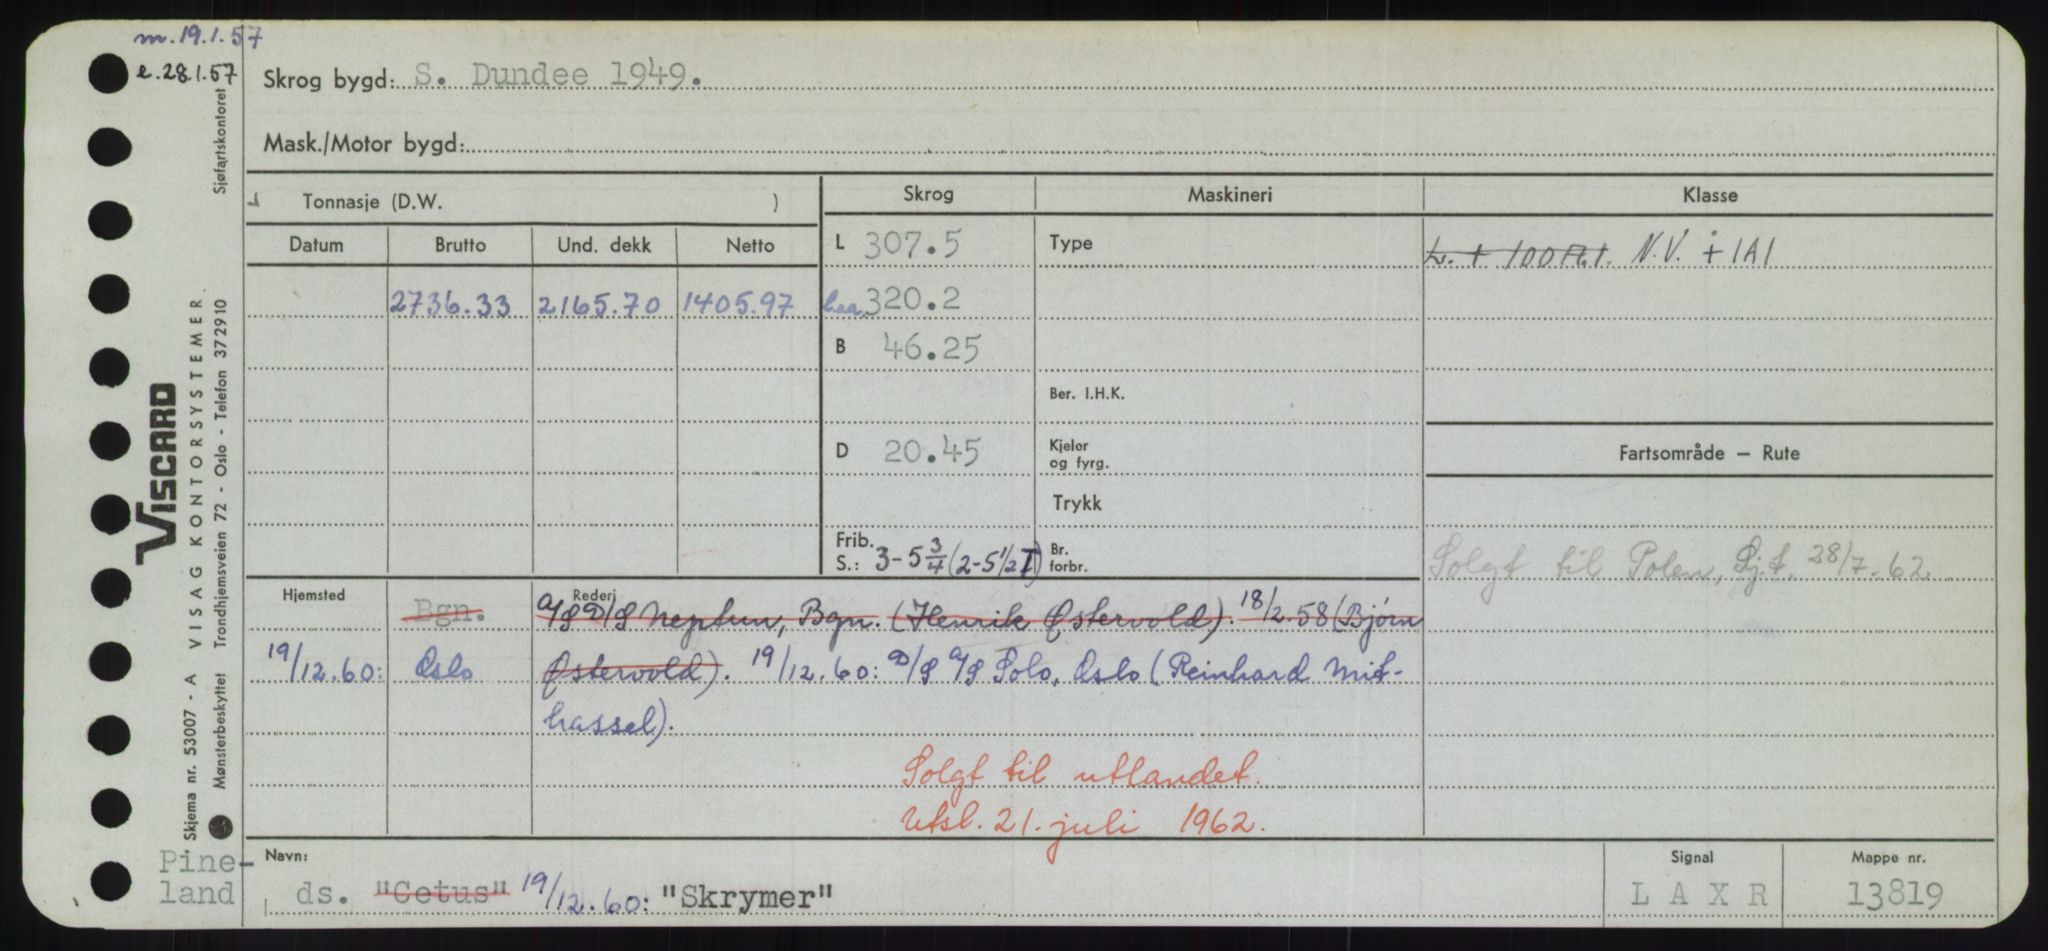 m. 19.1.57
e. 28.1.57
Skrog bygd: S. Dundee 1949.
Mask./Motor bygd:
Tonnasje (D.W. )
Skrog
Maskineri
Klasse
Datum
Brutto
Und. dekk
Netto
L 307.5
Type
L. + 100 A.1. N.V. + 1A1
2736.33
2165.70
1405.97
Loa 320.2
B 46.25
Ber. I.H.K.
D 20.45
Kjeler
og fyrg.
Fartsområde — Rute
Trykk
Frib.
S.: 3-5 3/4 (2-5 1/2 I)
Br.
forbr.
Solgt til Polen, Sj.t. 28/7-62
Hjemsted
Rederi
Bgn.
A/S D/S Neptun, Bgn. (Henrik Østervold). 18/2.58 (Bjørn
19/12.60: Oslo
Østervold). 19/12.60: D/S A/S Solo, Oslo (Reinhard Mit-
hassel).
Solgt til utlandet.
Utsl. 21. juli 1962.
Navn:
ds. "Cetus" 19/12.60: "Skrymer"
Signal
L A X R
Mappe nr.
13819
Pine-
land
VISCARD
VISAG KONTORSYSTEMER.
Sjøfartskontoret
Skjema nr. 53007 - A
Mønsterbeskyttet Trondhjemsveien 72 - Oslo - Telefon 372910